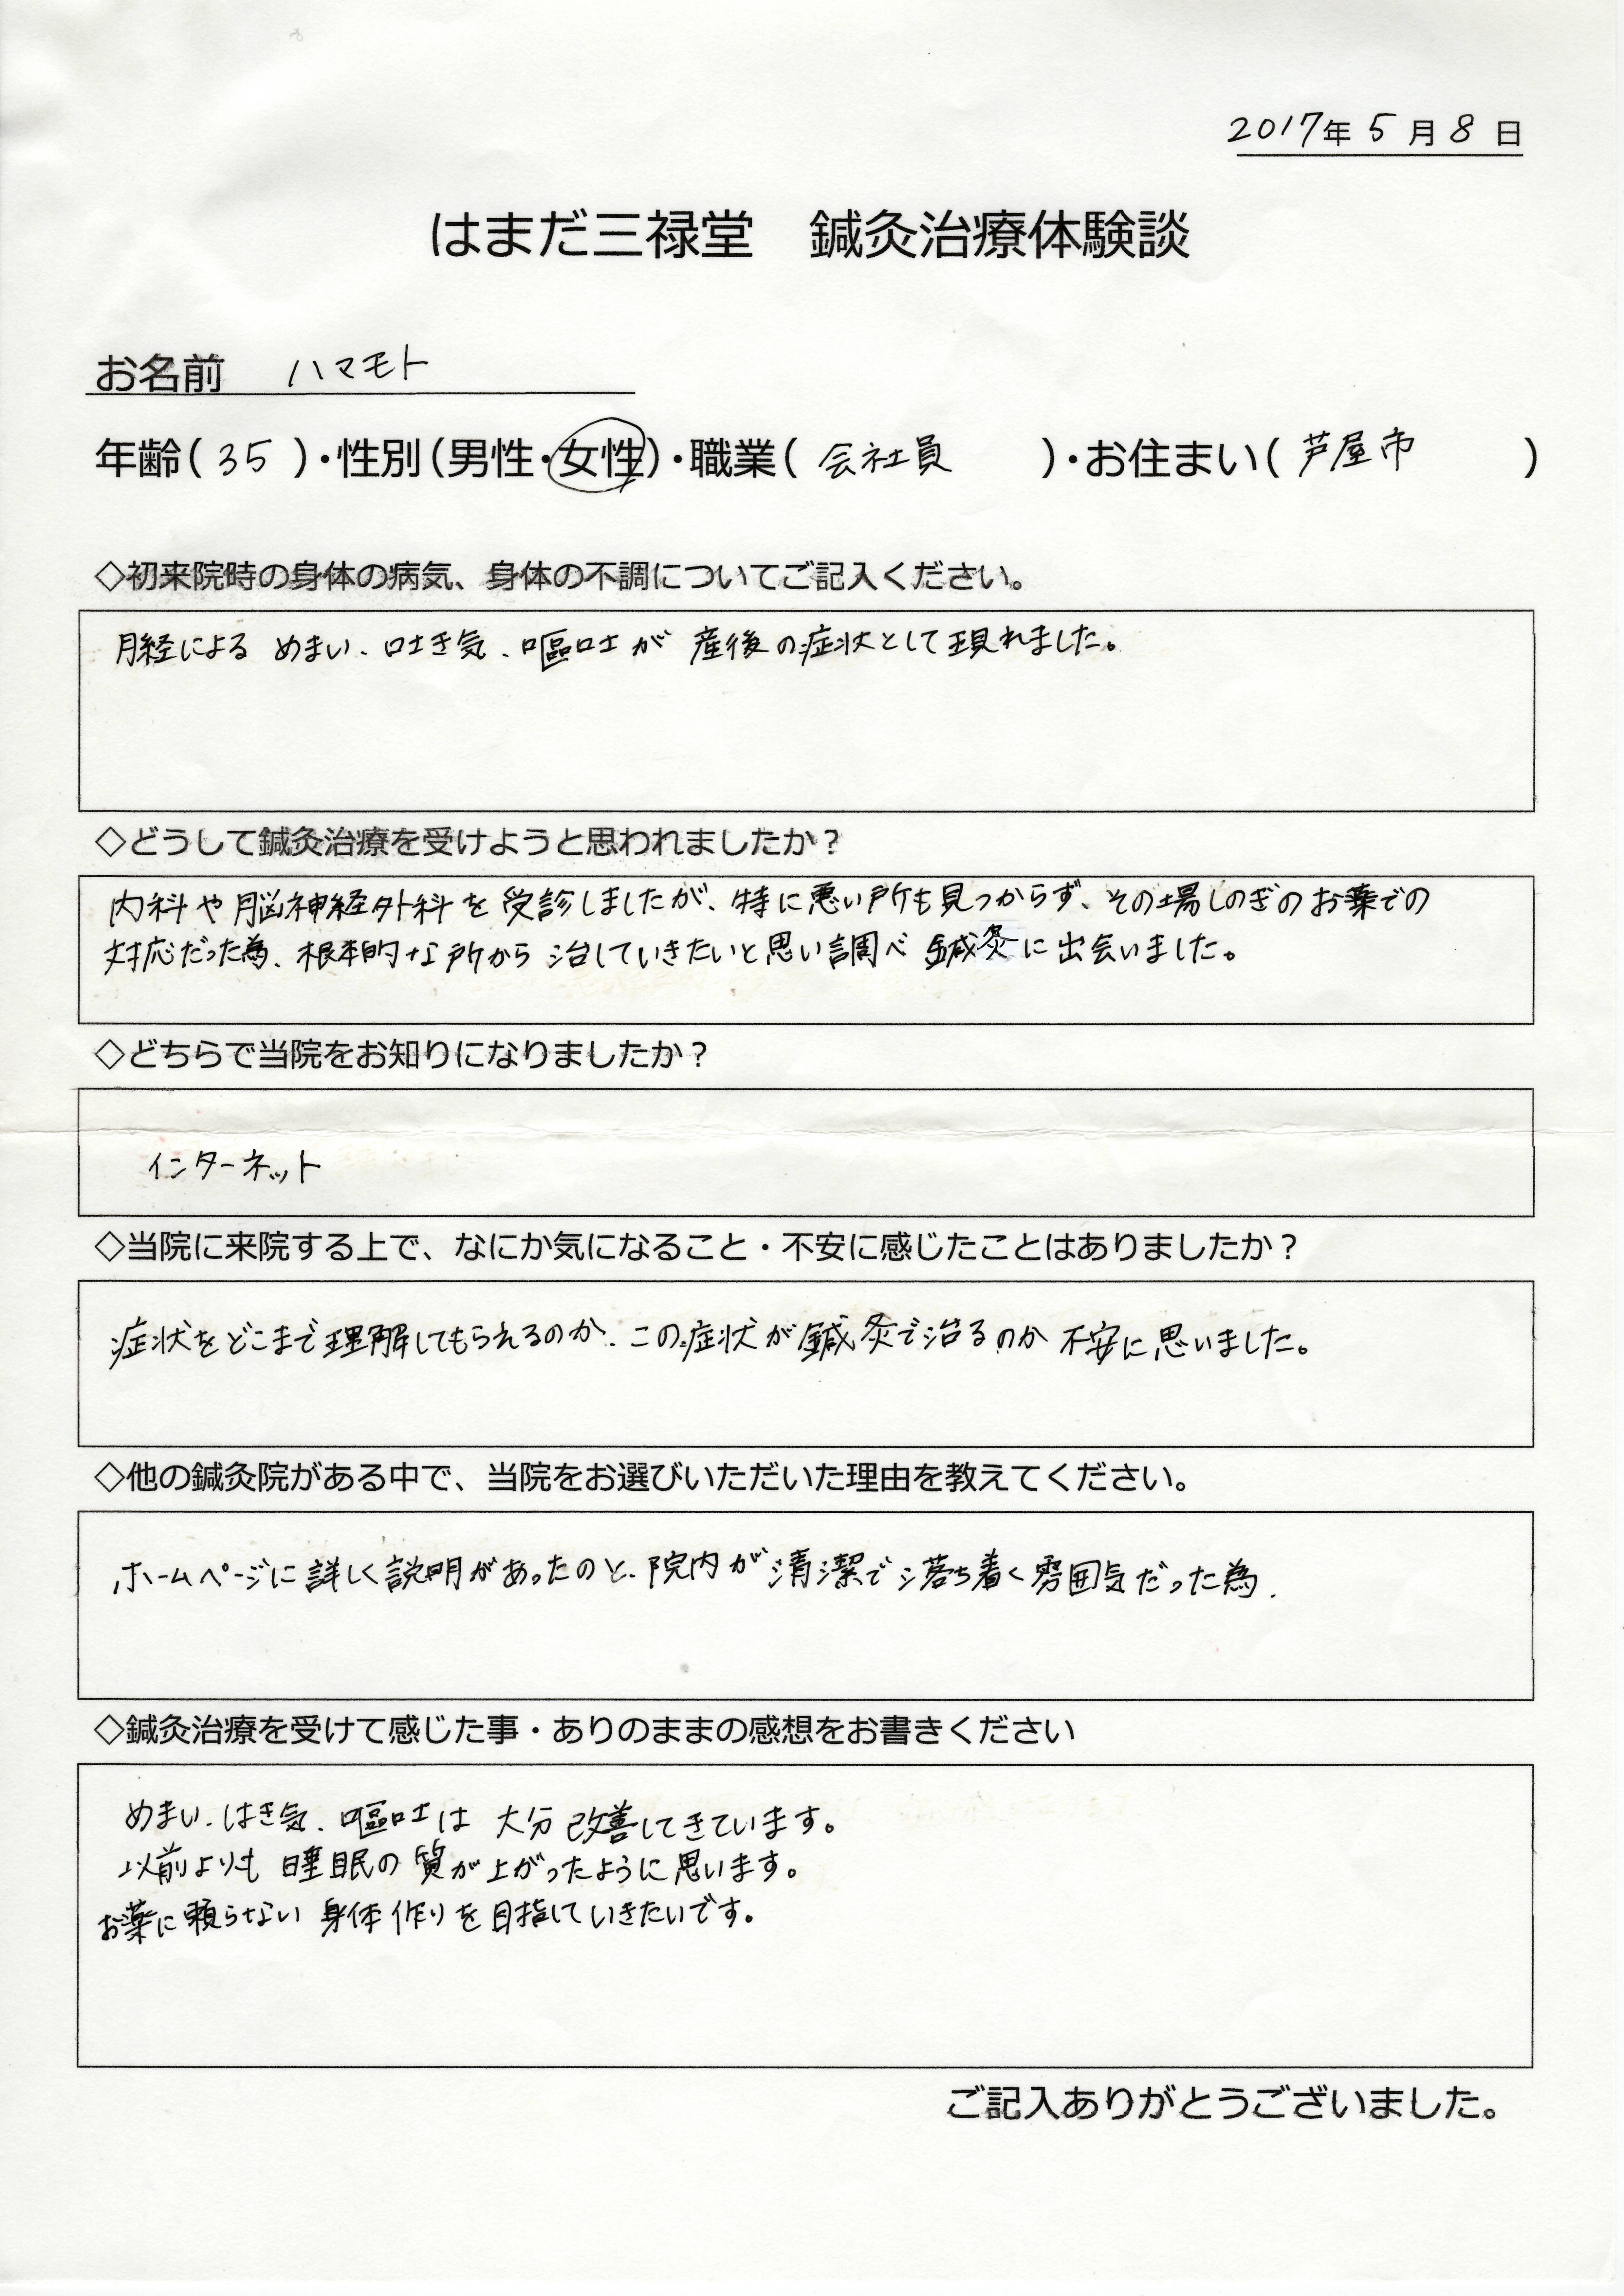 2017年 5 月 8 日
はまだ三禄堂　鍼灸治療体験談
お名前　ハマモト
年齢（35）・性別（男性・女性）・職業（会社員）・お住まい（芦屋市）
◇初来院時の身体の病気、身体の不調についてご記入ください。
月経による めまい、吐き気、嘔吐が 産後の症状として現れました。
◇どうして鍼灸治療を受けようと思われましたか？
内科や脳神経外科を受診しましたが、特に悪い所も見つからず、その場しのぎのお薬での
対応だった為、根本的な所から治していきたいと思い調べ 鍼灸に出会いました。
◇どちらで当院をお知りになりましたか？
インターネット
◇当院に来院する上で、なにか気になること・不安に感じたことはありましたか？
症状をどこまで理解してもらえるのか、この症状が鍼灸で治るのか 不安に思いました。
◇他の鍼灸院がある中で、当院をお選びいただいた理由を教えてください。
ホームページに詳しく説明があったのと、院内が清潔で落ち着く雰囲気だった為.
◇鍼灸治療を受けて感じた事・ありのままの感想をお書きください
めまい、はき気、嘔吐は 大分改善してきています。
以前よりも 睡眠の質が上がったように思います。
お薬に頼らない 身体作りを目指していきたいです。
ご記入ありがとうございました。